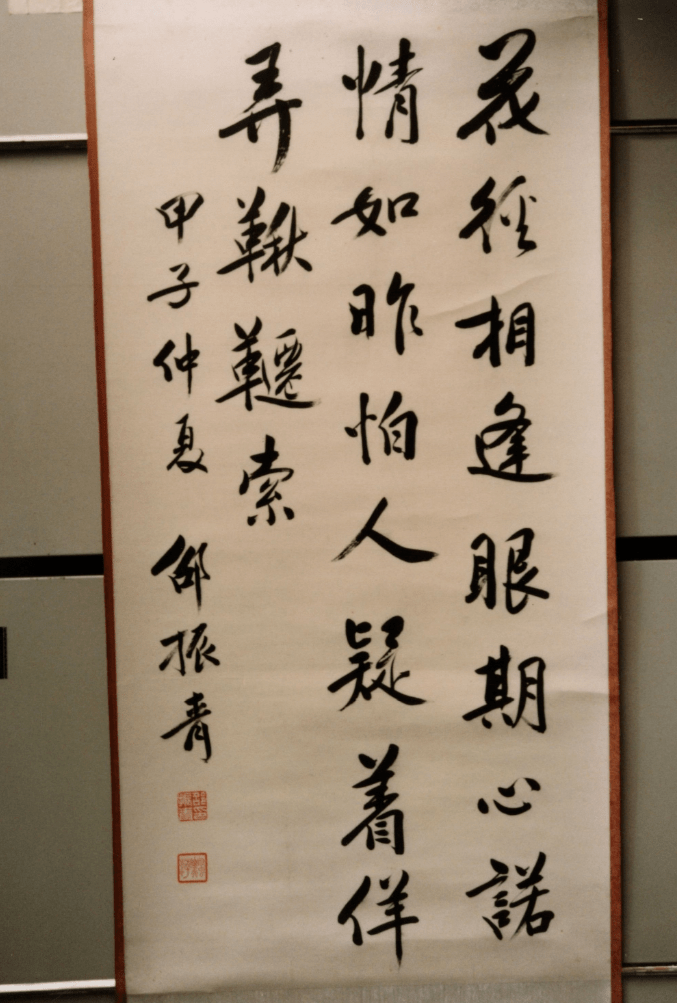 花徑相逢眼期心諾
情如昨怕人疑着佯
弄鞦韆索
甲子仲夏 邵振青